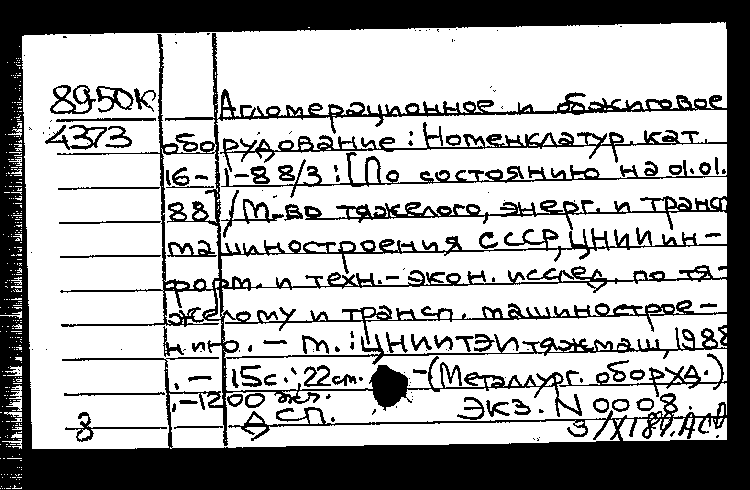 89-50К
4373
Агломерационное и обжиговое
оборудование : Номенклатур. кат.
16-1-88/3 : [По состоянию на 01.01.
88] / М-во тяжелого, энерг. и трансп.
машиностроения СССР, ЦНИИ ин-
форм. и техн.-экон. исслед. по тя-
желому и трансп. машинострое-
нию. - М. : ЦНИИТЭИтяжмаш, 1988
. - 15с.; 22см. - (Металлург. оборуд.)
. - 1200 экз.
СП. ЭКЗ. N 0008.
8
3/XI 89.